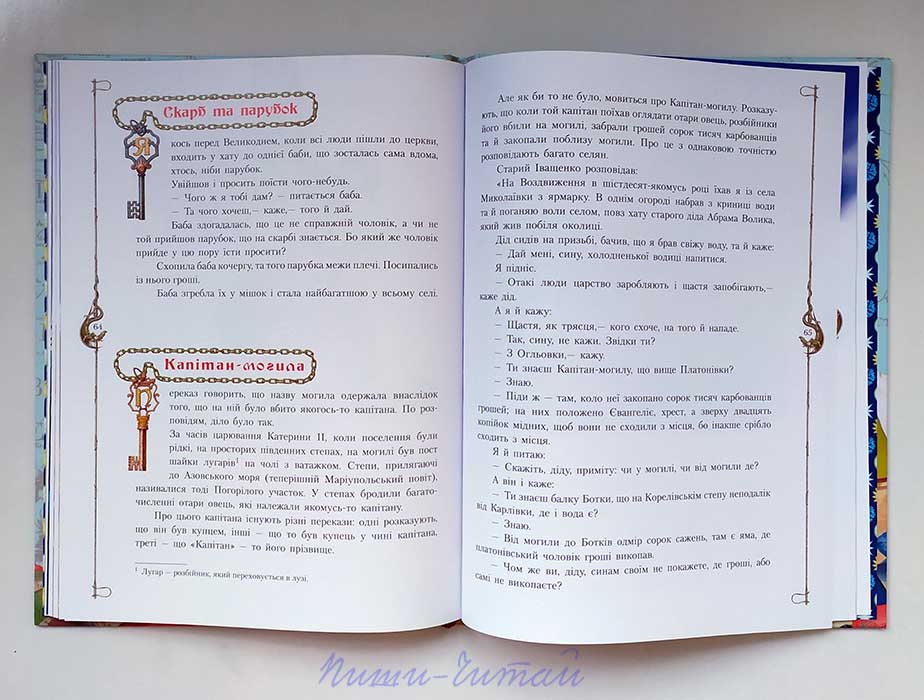 Скарб та парубок
Якось перед Великоднем, коли всі люди пішли до церкви,
входить у хату до однієї баби, що зосталась сама вдома,
хтось, ніби парубок.
Увійшов і просить поїсти чого-небудь.
— Чого ж я тобі дам? — питається баба.
— Та чого хочеш,— каже,— того й дай.
Баба здогадалась, що це не справжній чоловік, а чи не
той прийшов парубок, що на скарбі знається. Бо який же чоловік
прийде у цю пору їсти просити?
Схопила баба кочергу, та того парубка межи плечі. Посипались
із нього гроші.
Баба згребла їх у мішок і стала найбагатшою у всьому селі.
64
Капітан-могила
Переказ говорить, що назву могила одержала внаслідок
того, що на ній було вбито якогось-то капітана. По роз-
повідям, діло було так.
За часів царювання Катерини ІІ, коли поселення були
рідкі, на просторих південних степах, на могилі був пост
шайки лугарів1 на чолі з ватажком. Степи, прилягаючі
до Азовського моря (теперішній Маріупольський повіт),
називалися тоді Погорілого участок. У степах бродили багато-
численні отари овець, які належали якомусь-то капітану.
Про цього капітана існують різні перекази: одні розказують,
що він був купцем, інші — що то був купець у чині капітана,
треті — що «Капітан» — то його прізвище.
1 Лугар — розбійник, який переховується в лузі.
Але як би то не було, мовиться про Капітан-могилу. Розказу-
ють, що коли той капітан поїхав оглядати отари овець, розбійники
його вбили на могилі, забрали грошей сорок тисяч карбованців
та й закопали поблизу могили. Про це з однаковою точністю
розповідають багато селян.
Старий Іващенко розповідав:
«На Воздвиження в шістдесят-якомусь році їхав я із села
Миколаївки з ярмарку. В однім огороді набрав з криниці води
та й поганяю воли селом, повз хату старого діда Абрама Волика,
який жив побіля околиці.
Дід сидів на призьбі, бачив, що я брав свіжу воду, та й каже:
— Дай мені, сину, холодненької водиці напитися.
Я підніс.
— Отакі люди царство заробляють і щастя запобігають,—
каже дід.
А я й кажу:
— Щастя, як трясця,— кого схоче, на того й нападе.
— Так, сину, не кажи. Звідки ти?
— З Огльовки,— кажу.
— Ти знаєш Капітан-могилу, що вище Платонівки?
— Знаю.
— Піди ж — там, коло неї закопано сорок тисяч карбованців
грошей; на них положено Євангеліє, хрест, а зверху двадцять
копійок мідних, щоб вони не сходили з місця, бо інакше срібло
сходить з місця.
Я й питаю:
— Скажіть, діду, приміту: чи у могилі, чи від могили де?
А він і каже:
— Ти знаєш балку Ботки, що на Корелівськім степу неподалік
від Карлівки, де і вода є?
— Знаю.
— Від могили до Ботків одмір сорок сажень, там є яма, де
платонівський чоловік гроші викопав.
— Чом же ви, діду, синам своїм не покажете, де гроші, або
самі не викопаєте?
65
Пиши-Читай